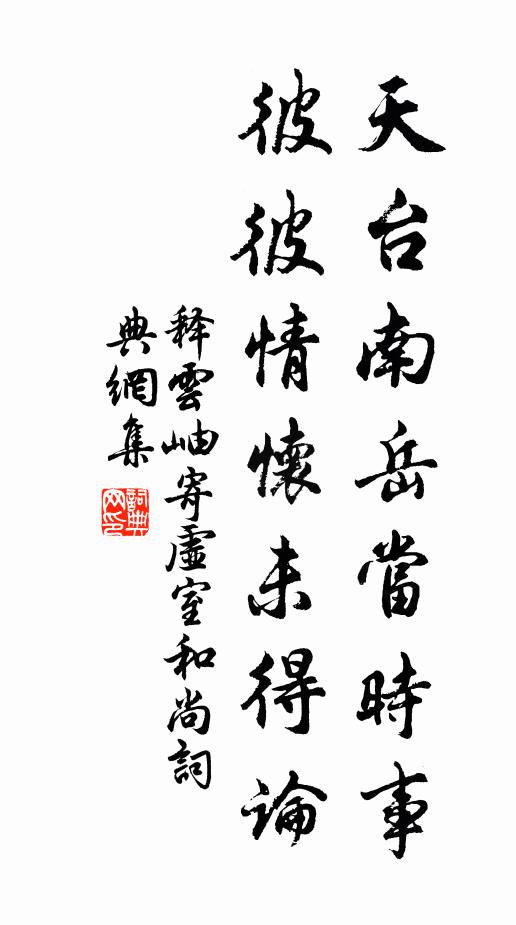 天台南岳當時事
彼彼情懷未得論
释雲岫寄虛室和尚詞
典網集
詞典网印